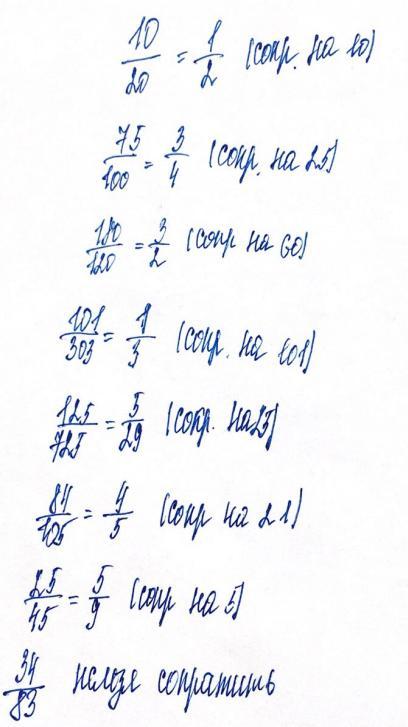 10/20 = 1/2 (сокр. на 10)
75/100 = 3/4 (сокр. на 25)
180/120 = 3/2 (сокр на 60)
101/303 = 1/3 (сокр. на 101)
125/725 = 5/29 (сокр. на 25)
84/105 = 4/5 (сокр на 21)
25/45 = 5/9 (сокр на 5)
34/83 нельзя сократить